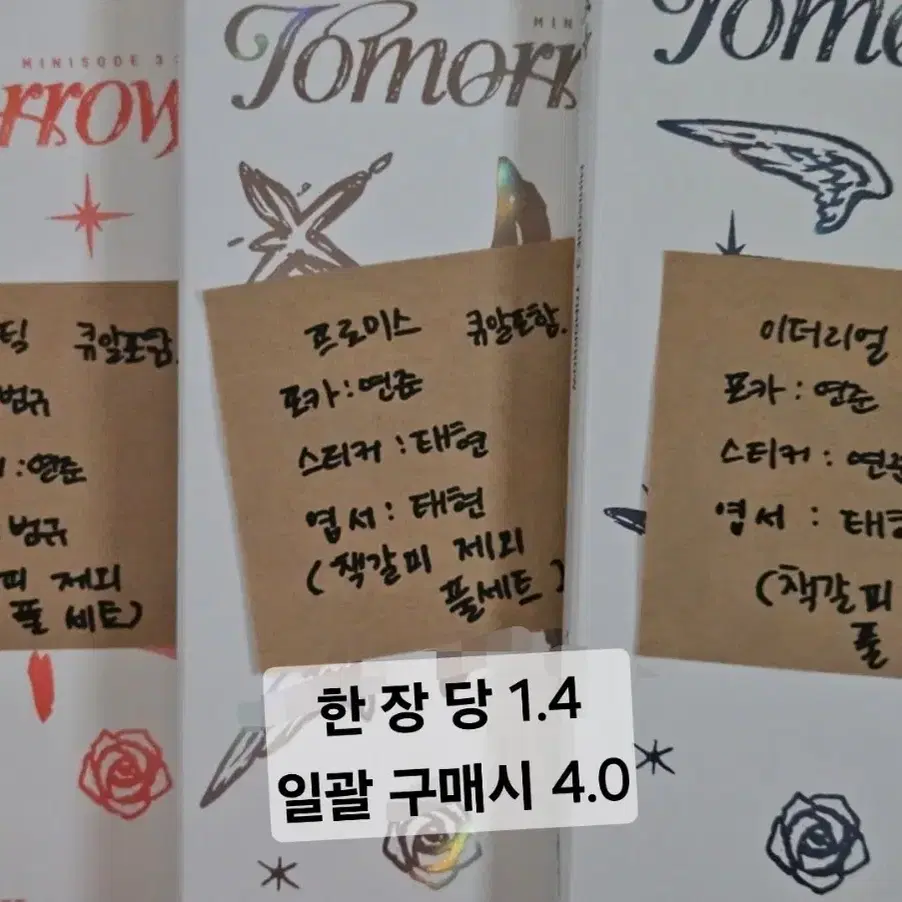 MINISODE 3:
rrow
틱 큐알포함.
범규
: 연준
: 범규
피 제외
풀 세트)
MIN
Tomorr
프로미스 큐알포함.
포카 : 연준
스티커 : 태현
엽서 : 태현
(책갈피 제외
풀세트)
MINISODE 3 TOMORROW
Tomo
이더리얼
포카 : 연준
스티커 : 연준
엽서 : 태현
(책갈피
풀
한 장 당 1.4
일괄 구매시 4.0